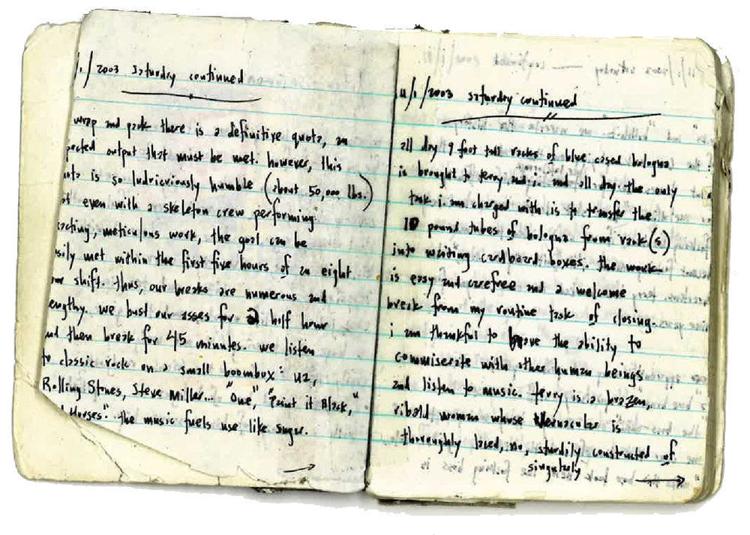 1/2003 saturday continued
wrap and pack there is a definitive quota, an
pected output that must be met. however, this
ota is so ludricriously humble (about 50,000 lbs.)
even with a skeleton crew performing
acting, meticulous work, the goal can be
sily met within the first five hours of an eight
our shift. thus, our breaks are numerous and
engthy. we bust our asses for a half hour
nd then break for 45 minutes. we listen
to classic rock on a small boombox: U2,
Rolling Stones, Steve Miller... "One," "Paint it Black,"
d Horses." the music fuels use like sugar.
11/1/2003 saturday continued
all day 9 foot tall racks of blue cased bologna
is brought to terry and i. and all day the only
task i am charged with is to transfer the
10 pound tubes of bologna from rack(s)
into waiting cardboard boxes. the work
is easy and carefree and a welcome
break from my routine task of closing.
i am thankful to have the ability to
commiserate with other human beings
and listen to music. terry is a brazen,
ribald woman whose vernacular is
thoroughly laced, no, sturdily constructed of
singularly